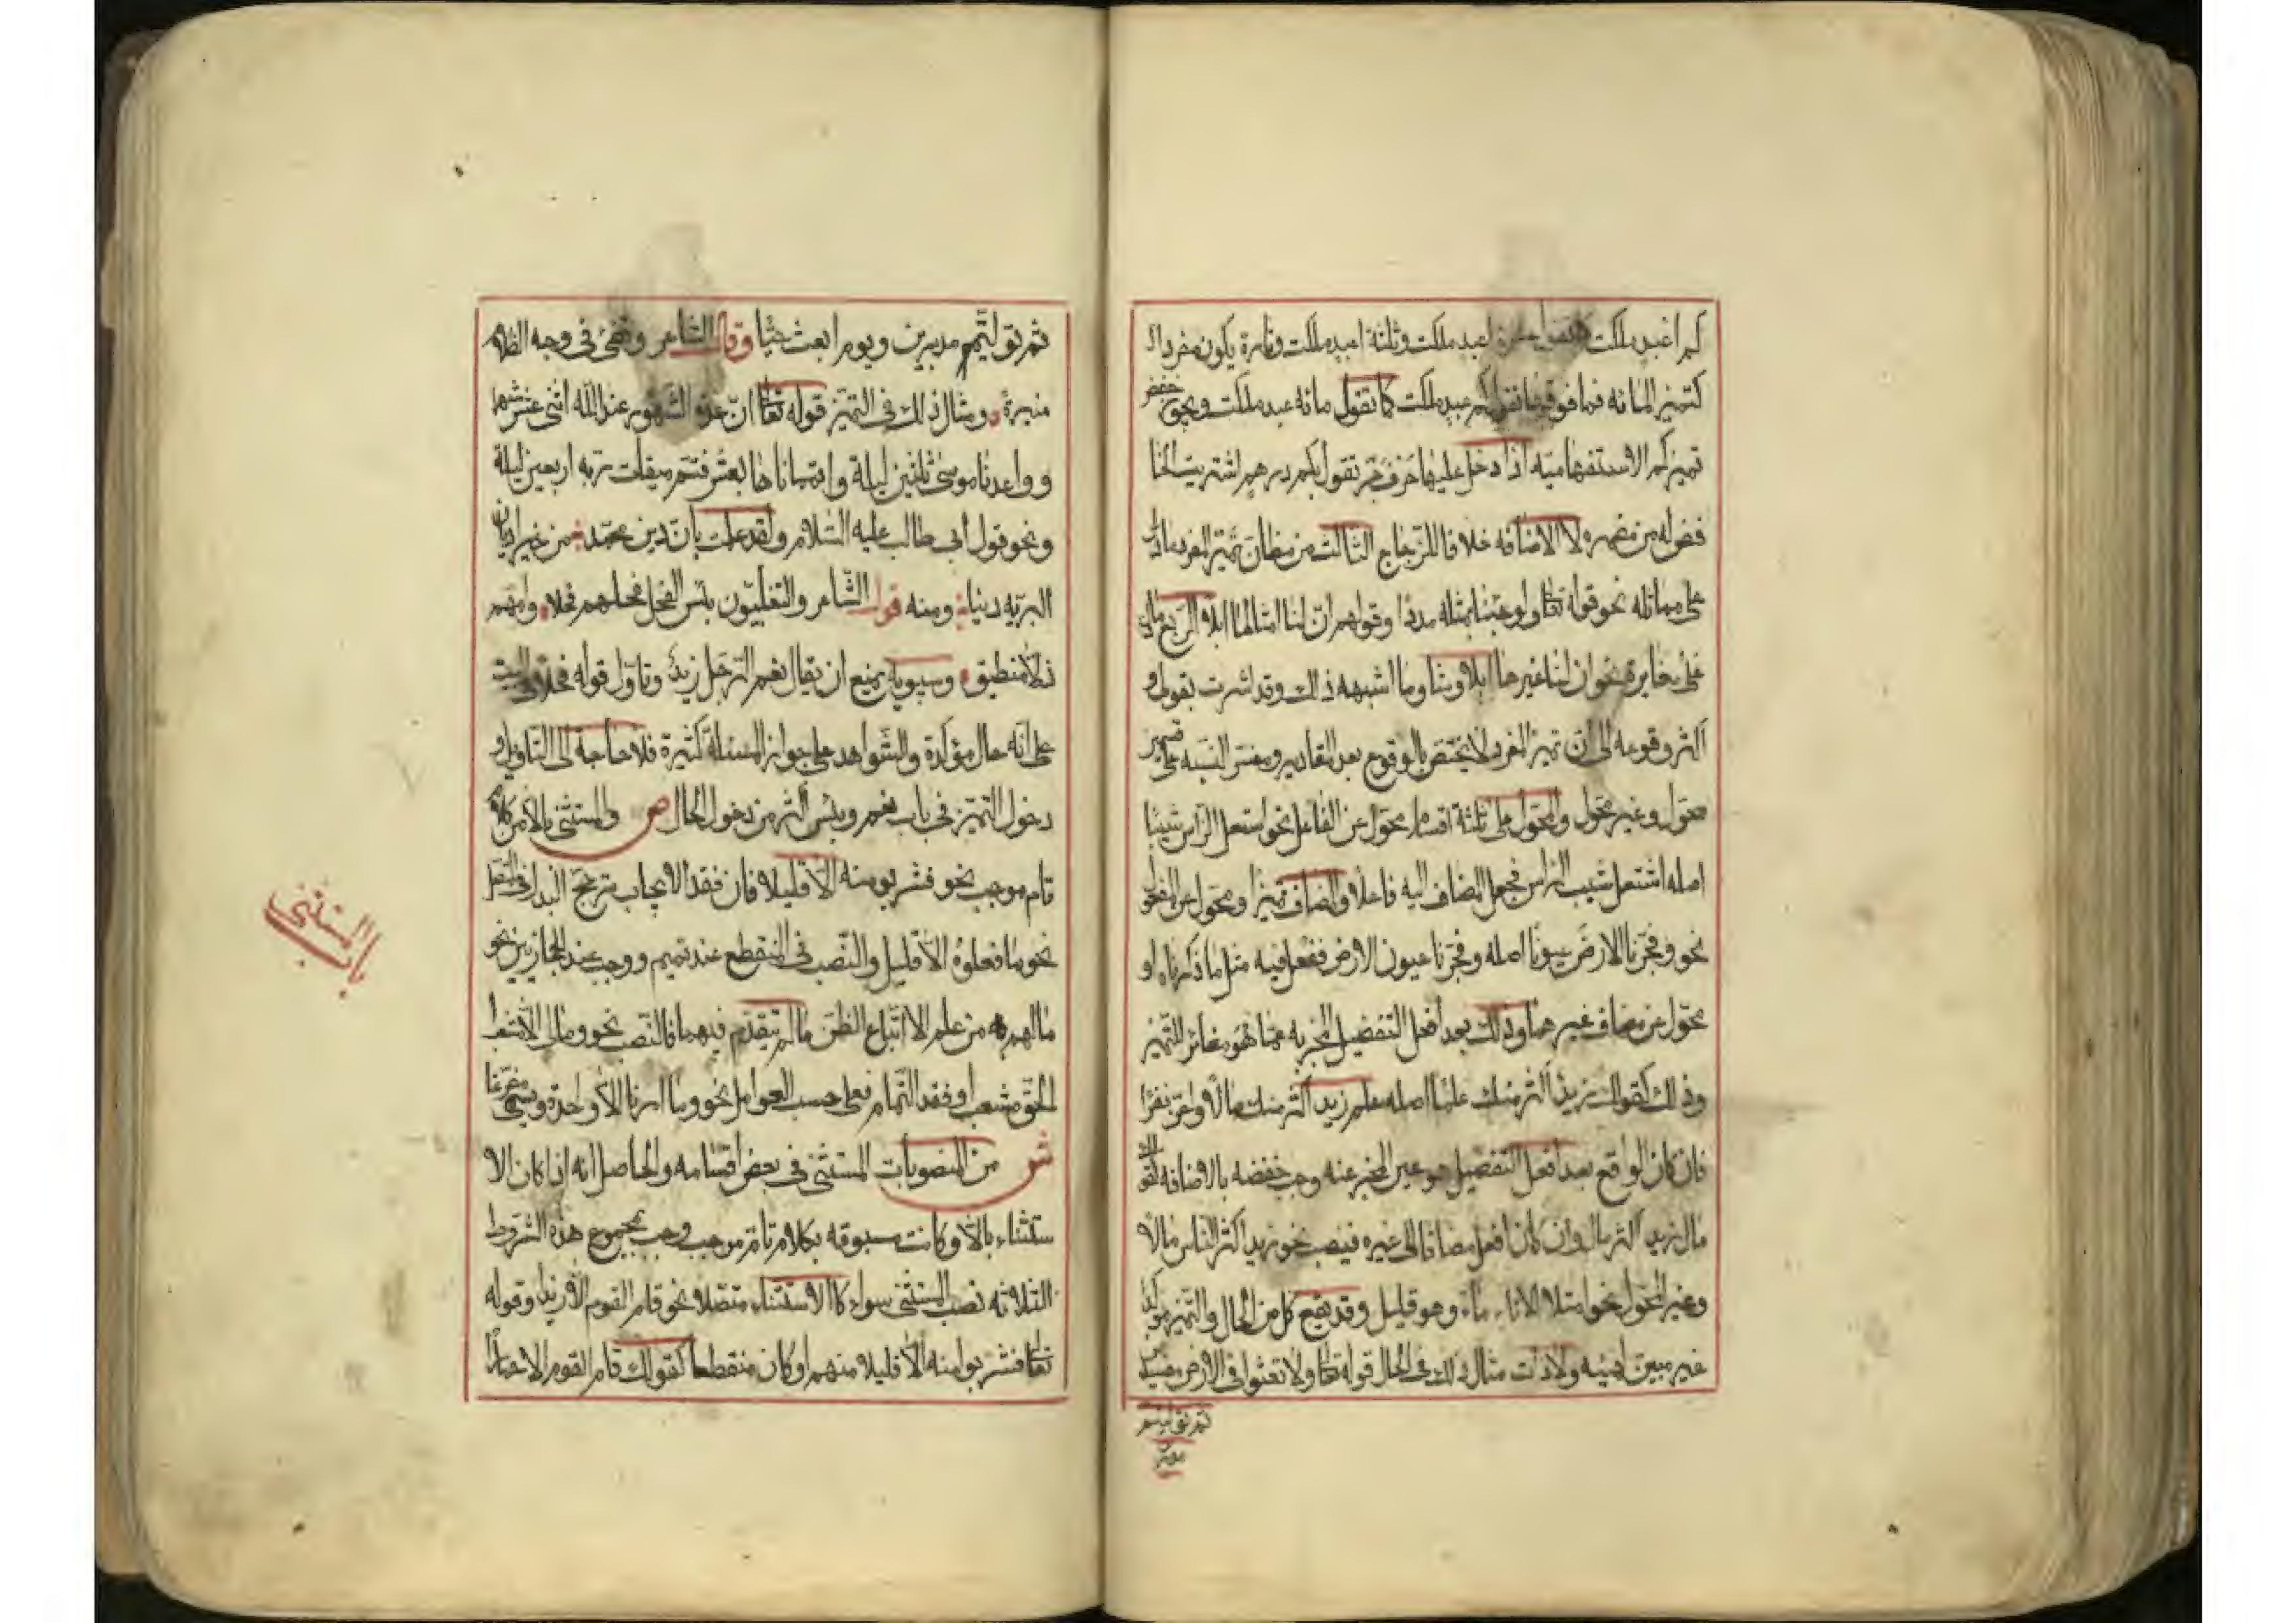 كم اعبد ملكت كما تقول عشرة اعبد ملكت وثلثة اعبد ملكت وتارة يكون مفردا
كتميز المائه فما فوقها تقول كم عبد ملكت كما تقول مائه عبد ملكت ويجوز خفض
تميز كم الاستفهاميه اذا دخل عليها حرف جر تقول بكم درهم اشتريت والخا
فض له من مضمره لا الاضافه خلافا للزجاج الثالث من مظان تميز المفرد مادل
على مماثله نحو قوله تعا ولو جئنا بمثله مددا وقولهم ان لنا امثالها ابلا الرابع مادل
على مغايرة نحو ان لنا غيرها ابلا وشا وما اشبهه ذلك وقد اشرت بقولي و
اكثر وقوعه الى ان تميز المفرد لا يختص بالوقوع بعد المقادير ومفسر النسبه على قسمين
محول وغير محول والمحول على ثلثة اقسام محول عن الفاعل نحو اشتعل الراس شيبا
اصله اشتعل شيب الراس فجعل المضاف اليه فاعلا والمضاف تميزا ومحول عن المفعول
نحو وفجرنا الارض عيونا اصله وفجرنا عيون الارض ففعل فيه مثل ما ذكرناه او
محول عن مضاف غيرهما وذلك بعد افعل التفضيل المخبر به عما هو مغائر للتميز
وذلك كقولك زيد اكثر منك علما اصله علم زيد اكثر منك مالا وعز نفرا
فان كان الواقع بعد افعل التفضيل هو عين المخبر عنه وجب خفضه بالاضافه كقولك
مال زيد اكثر مال وان كان افعل مضافا الى غيره فينصب نحو زيد اكثر الناس مالا
وغير المحول نحو امتلا الاناء ماء وهو قليل وقد يقع كل من الحال والتميز موكدا
غير مبين لهيئه ولاذات مثال ذلك في الحال قوله تعا ولا تعثوا في الارض مفسدين
ثم توليتم
مدبرين
ثم توليتم مدبرين ويوم ابعث حيا وقال الشاعر وتضئ في وجه الظلام
منيرة ومثال ذلك في التميز قوله تعا ان عدة الشهور عند الله اثنى عشر شهرا
وواعدنا موسى ثلثين ليلة واتممناها بعشر فتم ميقات ربه اربعين ليلة
ونحو قول ابي طالب عليه السلام ولقد علمت بان دين محمد من خير اديان
البريه دينا ومنه قول الشاعر والتغلبيون بئس الفحل فحلهم فحلا وامهم
زلاء منطيق وسيبويه يمنع ان يقال نعم الرجل زيد وتاول قوله فحلا في البيت
على انه حال مؤكدة والشواهد على جواز المسئلة كثيرة فلا حاجة الى التاويل و
دخول التميز في باب نعم وبئس اكثر من دخول الحال ص والمستثنى بالا من كلام
تام موجب نحو فشربو منه الا قليلا فان فقد الايجاب ترجح البدل في المتصل
نحو ما فعلوه الا قليل والنصب في المنقطع عند تميم ووجب عند الحجازيين نحو
مالهم به من علم الا اتباع الظن مالم يتقدم فيهما فالنصب نحو ومالي الا مذهب
الحق مشعب او فقد التمام فعلى حسب العوامل نحو وما امرنا الا واحدة ويسمى مفرغا
ش من المنصوبات المستثنى في بعض اقسامه والحاصل انه اذا كان الا
ستثناء بالا وكانت مسبوقه بكلام تام موجب وجب بمجموع هذه الشروط
الثلاثه نصب المستثنى سواء كا الاستثناء متصلا نحو قام القوم الا زيدا وقوله
تعا فشربوا منه الا قليلا منهم او كان منقطعا كقولك قام القوم الا حمارا
باب المستثنى